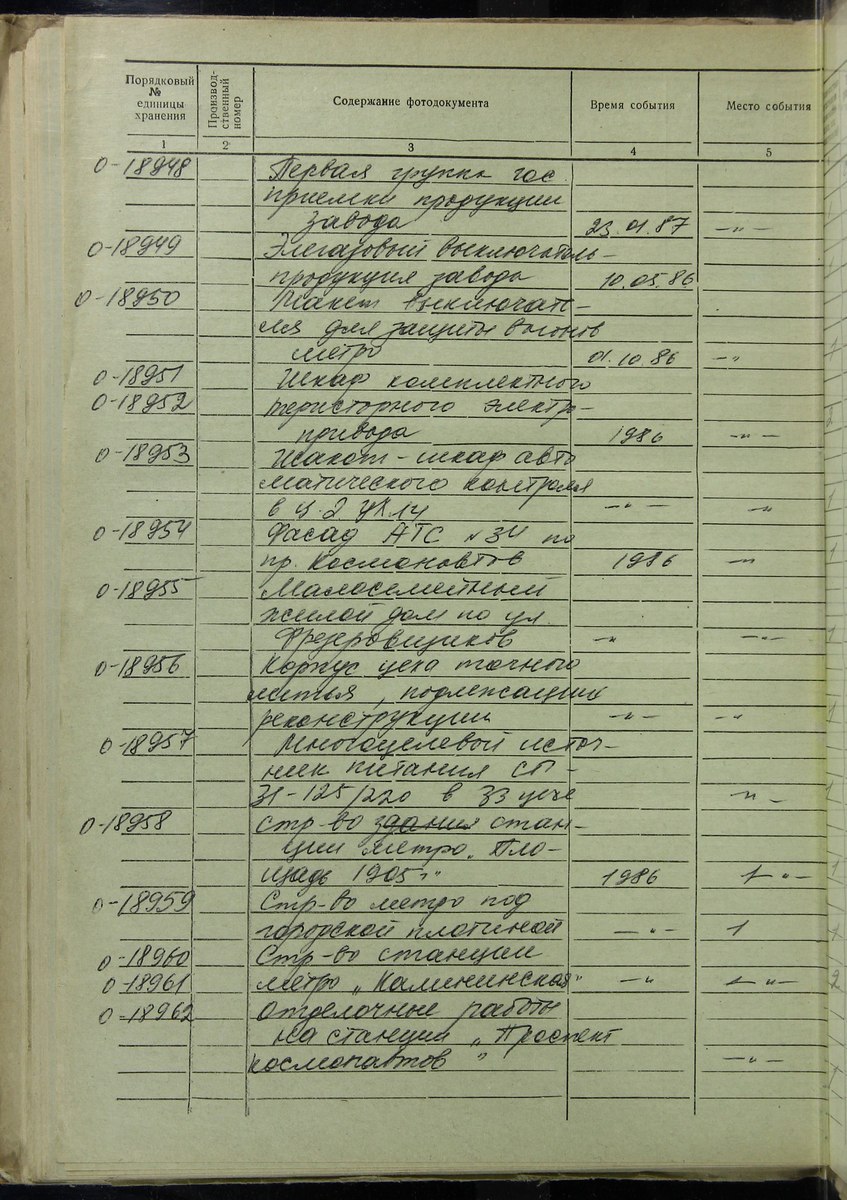 Порядковый № единицы хранения | Производ-ственный номер | Содержание фотодокумента | Время события | Место события
1 | 2 | 3 | 4 | 5
0-18948 Первая группа гос
приемки продукции
завода 23.01.87 — " —
0-18949 Элегазовый выключатель-
продукция завода 10.05.86
0-18950 Макет выключате-
ля для защиты вагонов
метро 01.10.86 — "
0-18951 Шкаф комплектного
0-18952 теристорного электро-
привода 1986 — " —
0-18953 Макет - шкаф авто
матического контроля
в ц. 2 УК.14 — " — — "
0-18954 Фасад АТС № 34 по
пр. Космонавтов 1986 — "
0-18955 Малосемейный
жилой дом по ул.
Фрезеровщиков — " — " —
0-18956 Корпус цеха точного
литья, подлежащих
реконструкции — " — — "
0-18957 Многоцелевой источ-
ник питания
31-125/220 в 33 цехе " —
0-18958 стр-во здания стан-
ции метро „Пло-
щадь 1905 г" 1986 1 " —
0-18959 Стр-во метро под
городской плотиной — " — 1
0-18960 Стр-во станции
0-18961 метро „Калининская" — " 1 " —
0-18962 Отделочные работы
на станции „Проспект
космонавтов" — " —